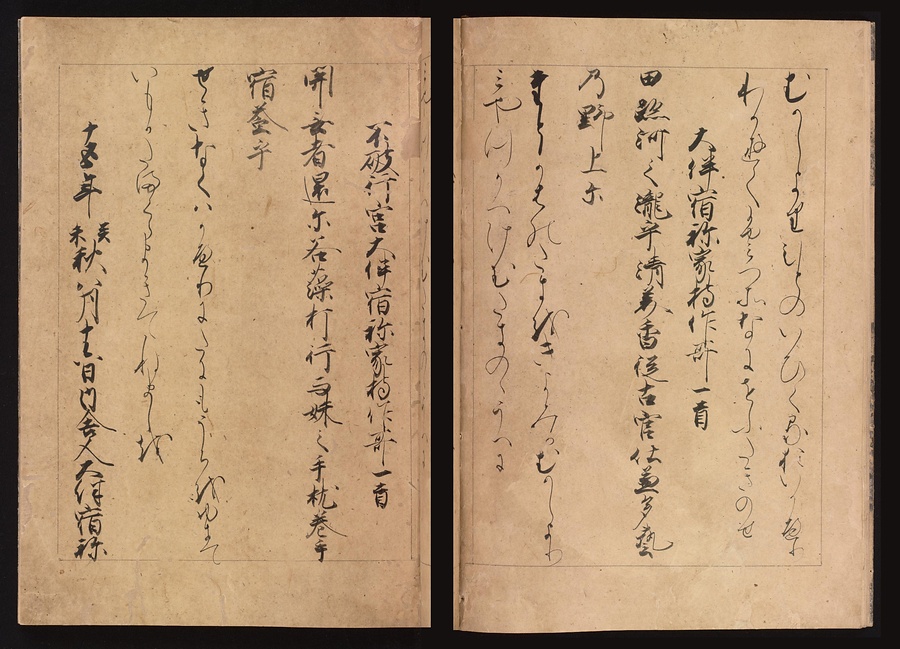 むかしよりひとのいひくるおいひとの
わかゆてふみつそなにをふたきのせ
大伴宿祢家持作哥一首
田跡河之瀧乎清美香従古官仕兼多藝
乃野上尓
たとかはのたきをきよみかむかしより
みやつかへけむたきのゝうへに
不破行宮大伴宿祢家持作哥一首
開無者還尓谷藻打行而妹之手枕巻手
宿益乎
せきなくはかへりにたにもうちゆきて
いもかたまくらまきてねましを
十五年癸未秋八月十六日内舎人大伴宿祢